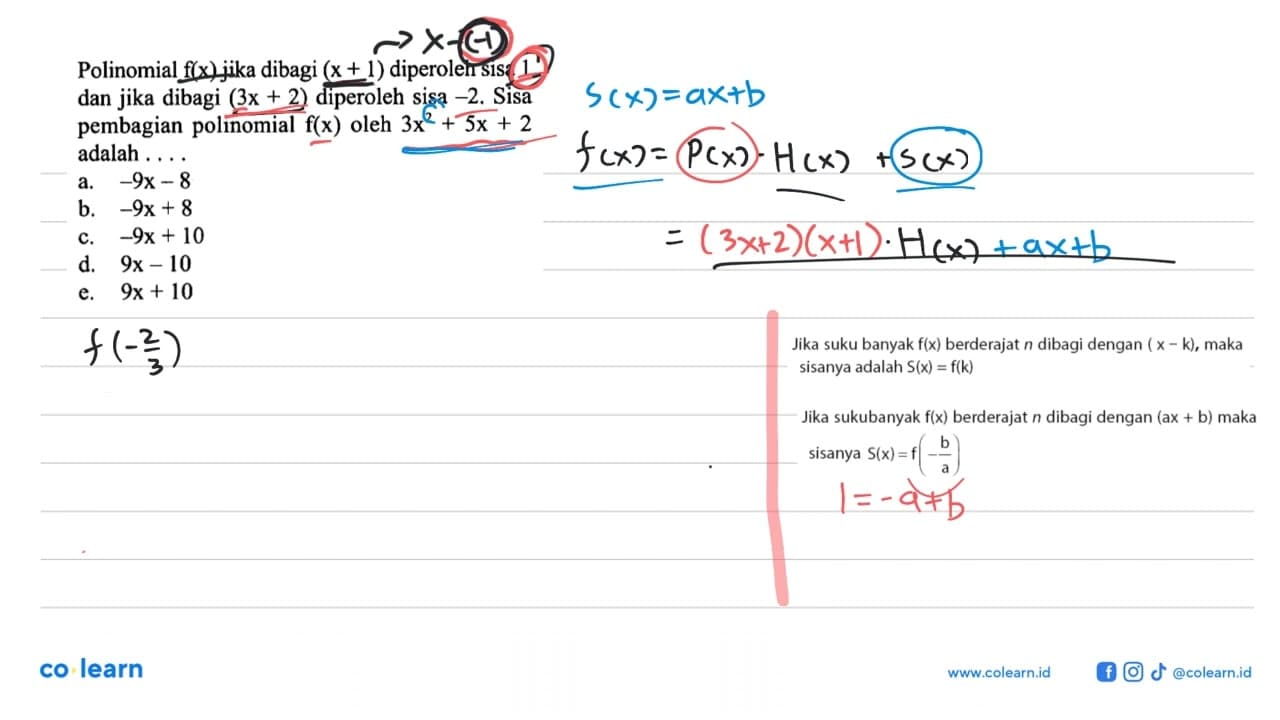 → x-(-1)
Polinomial f(x) jika dibagi (x + 1) diperoleh sisa 1
dan jika dibagi (3x + 2) diperoleh sisa –2. Sisa
pembagian polinomial f(x) oleh 3x² + 5x + 2
adalah . . . .
a. –9x – 8
b. –9x + 8
c. –9x + 10
d. 9x – 10
e. 9x + 10
f(-2/3)
S(x)=ax+b
f(x)= P(x)·H(x) +S(x)
= (3x+2)(x+1)·H(x)+ax+b
Jika suku banyak f(x) berderajat n dibagi dengan ( x – k), maka
sisanya adalah S(x) = f(k)
Jika sukubanyak f(x) berderajat n dibagi dengan (ax + b) maka
sisanya S(x) = f(-b/a)
1=-a+b
co learn
www.colearn.id
@colearn.id